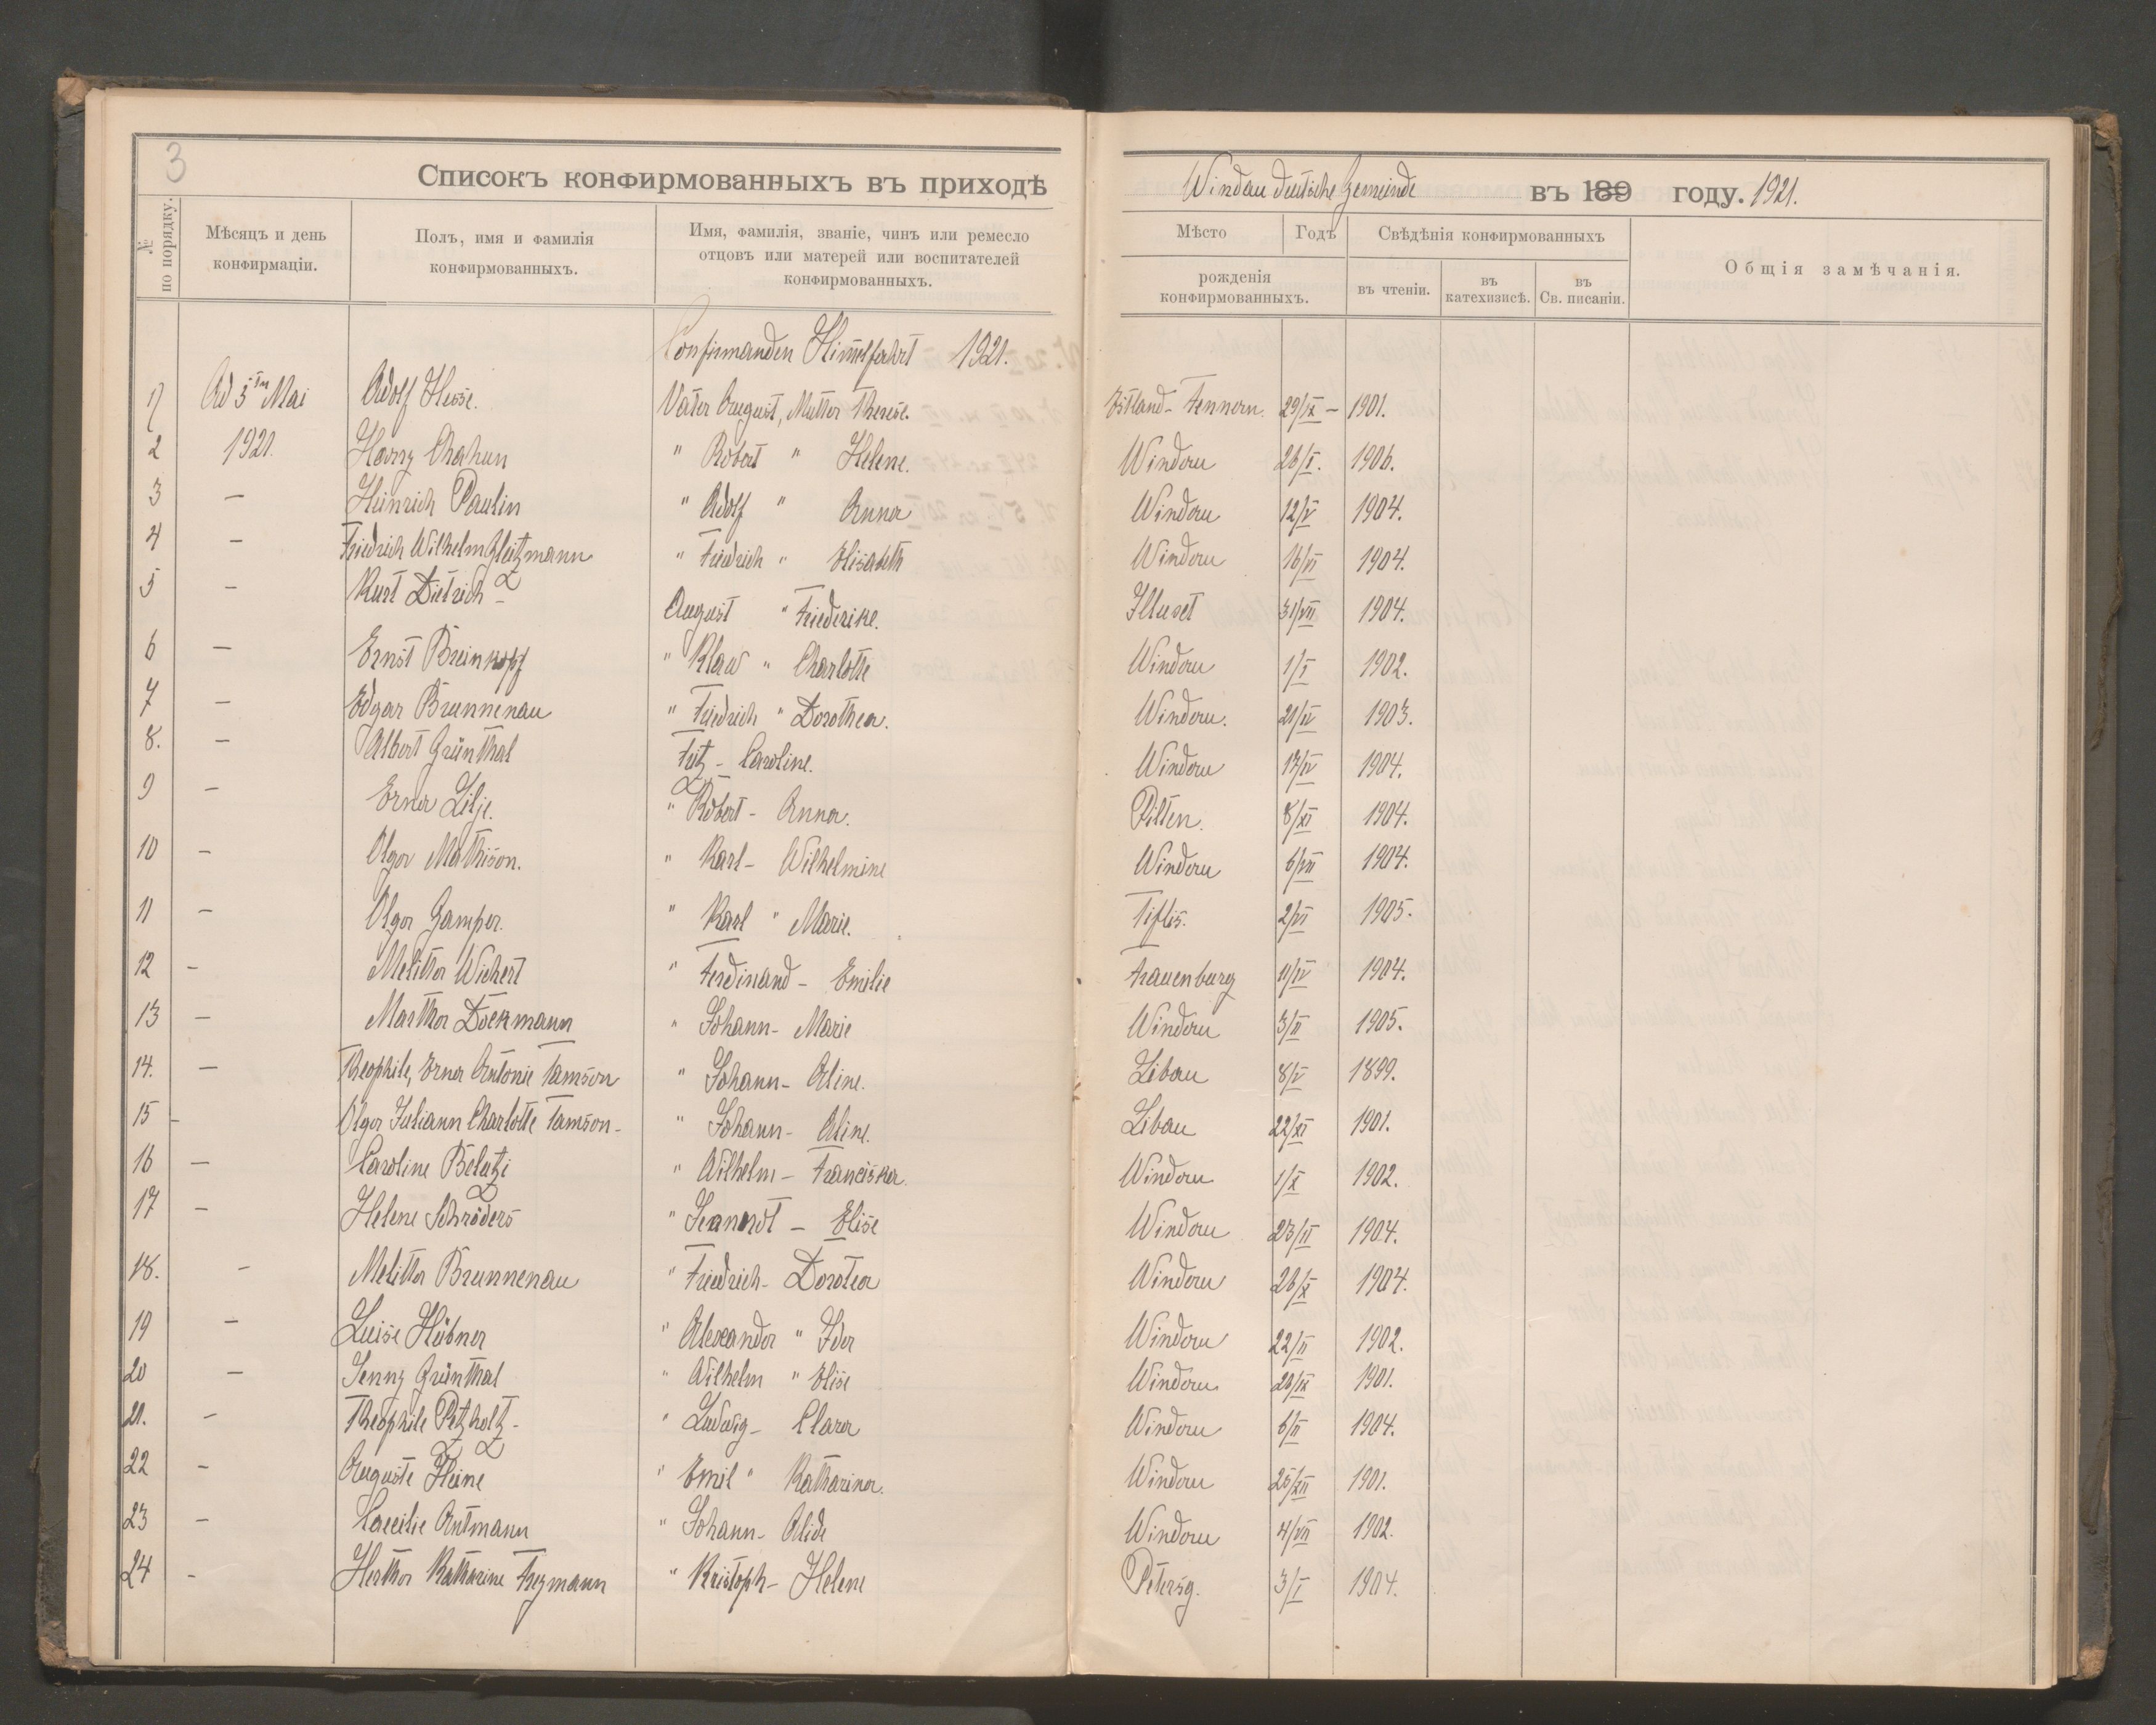 3
Списокъ конфирмованныхъ въ приходѣ Windau deutsche Gemeinde въ 189 году. 1921.
№ по порядку.
Мѣсяцъ и день конфирмаціи.
Полъ, имя и фамилія конфирмованныхъ.
Имя, фамилія, званіе, чинъ или ремесло отцовъ или матерей или воспитателей конфирмованныхъ.
Мѣсто Годъ
рожденія конфирмованныхъ.
Свѣдѣнія конфирмованныхъ
въ чтеніи. въ катехизисѣ. въ Св. писаніи.
Общія замѣчанія.
Confirmanden Himmelfahrt 1921.
1) Ad 5ten Mai Adolf Hesse. Vater August, Mutter Therese. Estland-Fennern. 29/IX – 1901.
2 1921. Harry " Robert " Helene. Windau 26/I. 1906.
3 – Heinrich Paulin " Adolf " Anna Windau 12/V 1904.
4 – Friedrich Wilhelm Gleitzmann " Friedrich " Elisabeth Windau 16/VI 1904.
5 – Kurt Dietrich – August " Friederike. Illuxt 31/VII 1904.
6 – Ernst Breinkopf " Klaw " Charlotte Windau 1/I 1902.
7 – Edgar Brunnenau " Friedrich " Dorothea. Windau. 21/IV 1903.
8. – Albert Grünthal Fritz – Caroline. Windau 17/IV 1904.
9 – Erna Lilje. " Robert – Anna. Pilten. 8/XI 1904.
10 – Olga Mathison. " Karl – Wilhelmine Windau 6/VII 1904.
11 – Olga Gamper. " Karl " Marie. Tiflis. 2/VI 1905.
12 – Melitta Wichert " Ferdinand – Emilie Frauenburg 11/IV 1904.
13 – Martha Dockmann " Johann – Marie Windau 3/II 1905.
14. – Theophile, Erna Antonie Tamson " Johann – Aline. Libau 8/V 1899.
15 – Olga Juliann Charlotte Tamson – " Johann – Aline. Libau 22/XI 1901.
16 – Caroline Belutzi " Wilhelm – Franciska. Windau 1/X 1902.
17 – Helene Schröders " – Elise Windau 23/II 1904.
18. – Melitta Brunnenau " Friedrich – Dorotea Windau 26/X 1904.
19 – Luise Hübner " Alexander " Ida Windau 22/II 1902.
20 – Jenny Grünthal " Wilhelm " Elise Windau 20/IX 1901.
21. – Theophile Petzholtz – " Ludwig – Clara Windau 6/II 1904.
22 – Auguste Heine " Emil " Katharina. Windau 25/XII 1901.
23 – Caecilie Antmann " Johann – Alide Windau 4/VII 1902.
24 – Hertha Katharine Freymann " Kristoph – Helene Petersg. 3/I 1904.